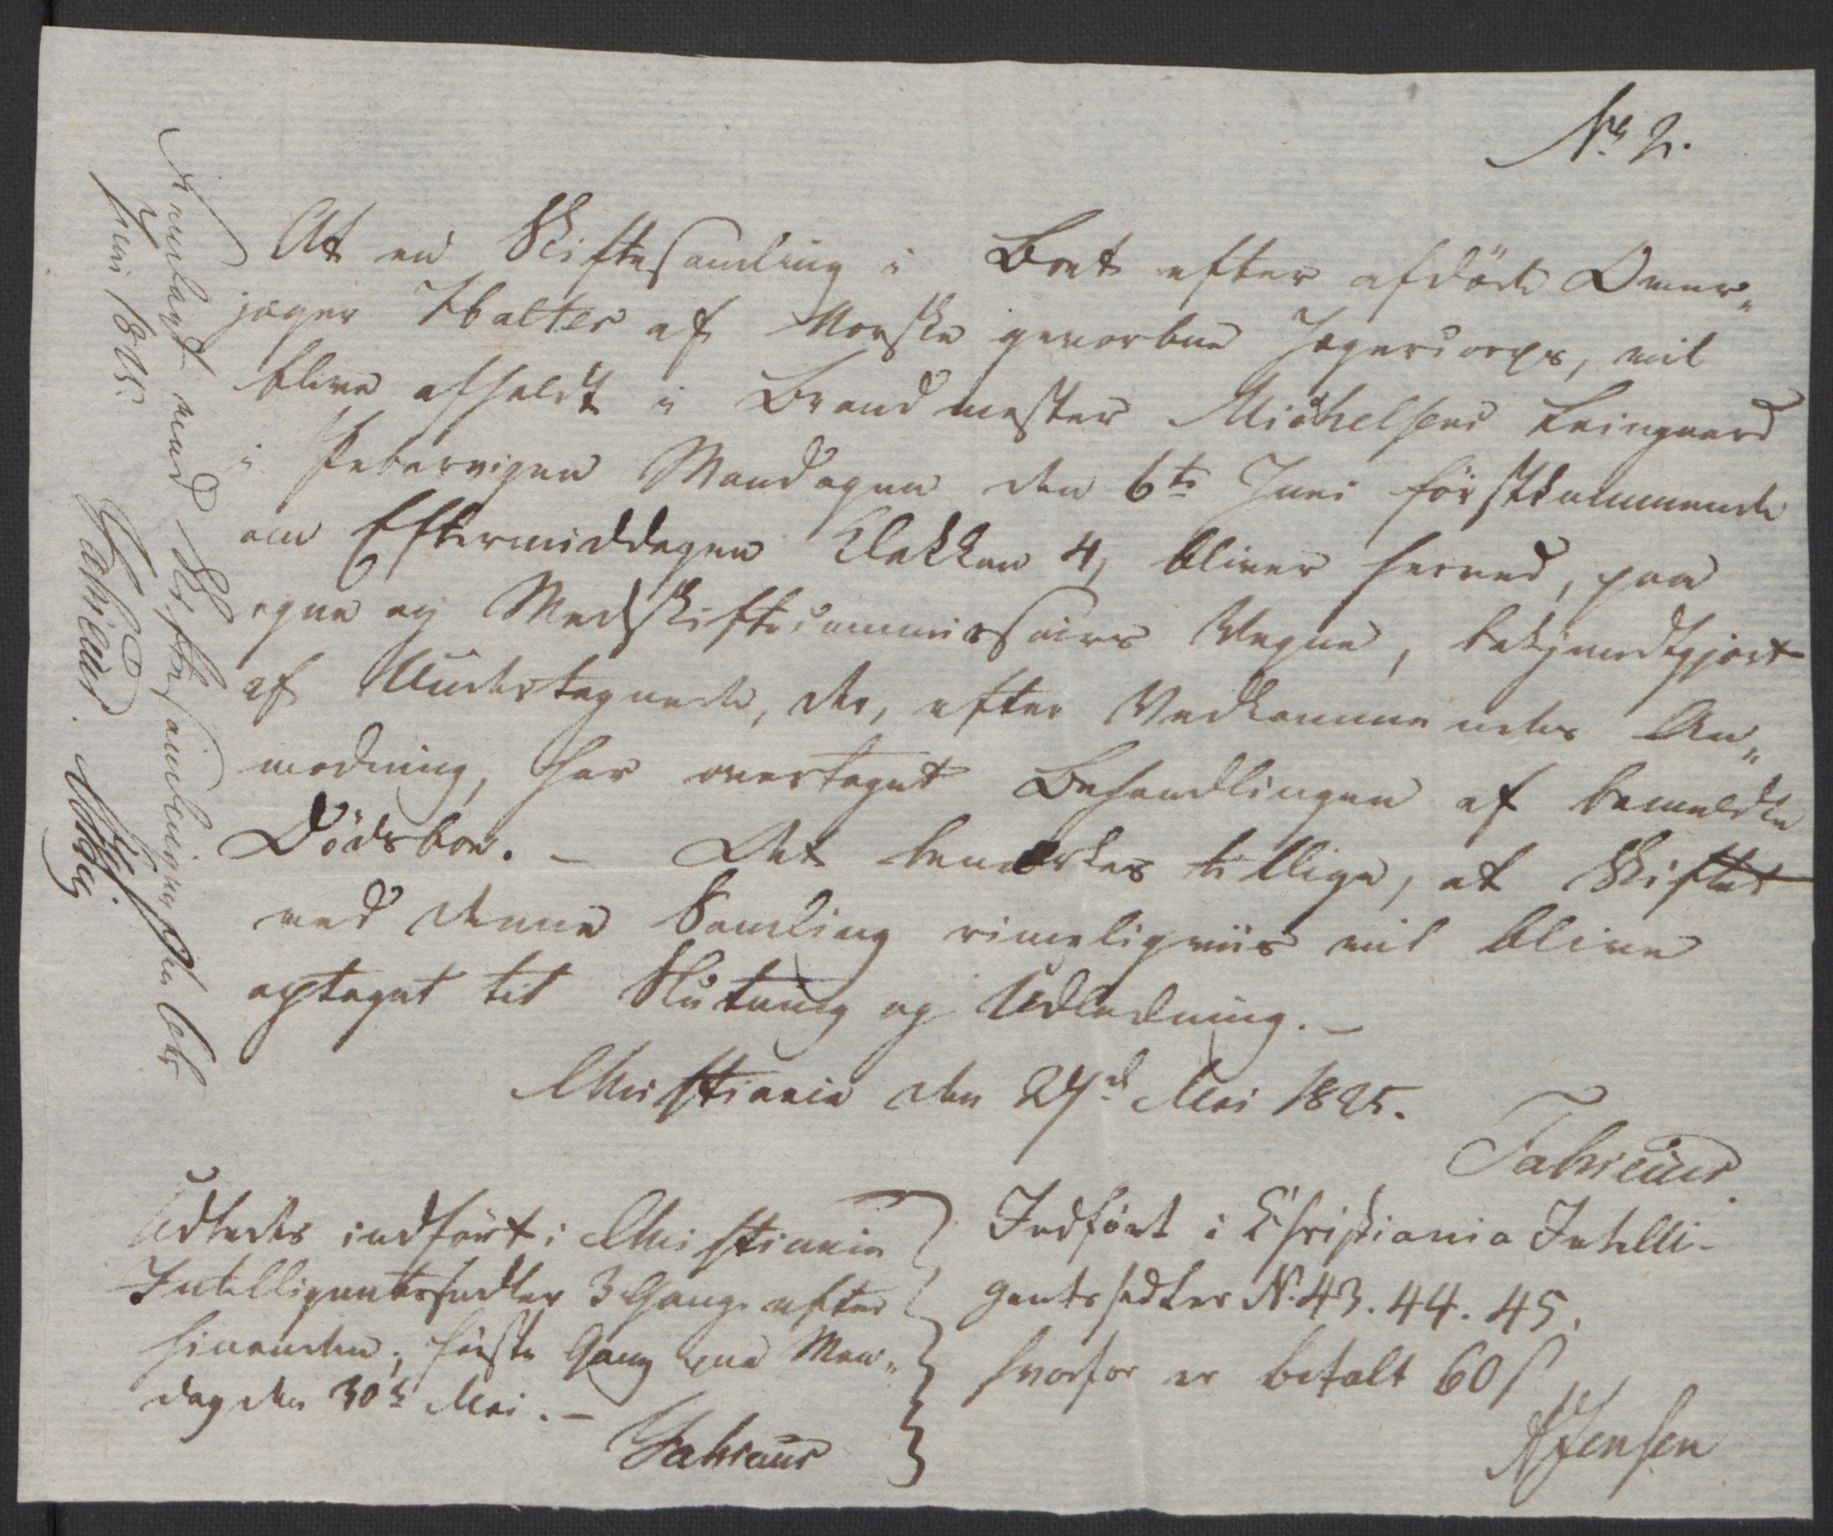 No 2.
At en Skiftesamling i Boet efter afdöde Over„
jæger Walter af Norske gevorbne Jægercorps, vil
blive afholdt i Brandmester Michelsens Leiegaard
i Pebervigen Mandagen den 6te Juni förstkommende
om Eftermiddagen Klokken 4, bliver herved, paa
egne og Medskiftecommissairs Vegne, bekjendtgjort
af Undertegnede, der, efter Vedkommendes An„
modning, har overtaget Behandlingen af bemeldte
Dödsboe. — Det bemærkes tillige, at Skiftet
ved denne Samling rimeligviis vil blive
optaget til Slutning og Udlodning. —
Christiania den 27d Mai 1825.
Fabricius.
Udbedes indfört i Christiania
Intelligentssedler 3 Gange efter
hinanden, förste Gang paa Man„
dag den 30te Mai. —
Fabricius
Indfört i Christiania Intelli-
gentssedler N. 43. 44. 45,
hvorfor er betalt 60 s
NJensen
Fremlagt ved Skiftesamlingen den 6te
Juni 1825.
Fabricius.